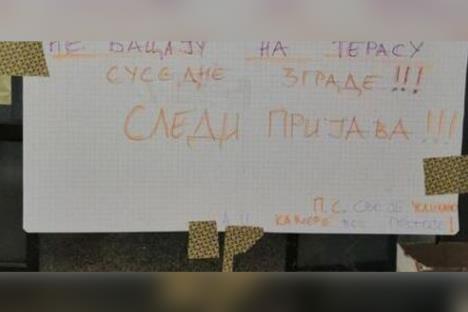 НЕ БАЦАЈУ НА ТЕРАСУ
СУСЕДНЕ ЗГРАДЕ!!!
СЛЕДИ ПРИЈАВА!!!
П.С. СВЕ ЈЕ
КАМЕРЕ